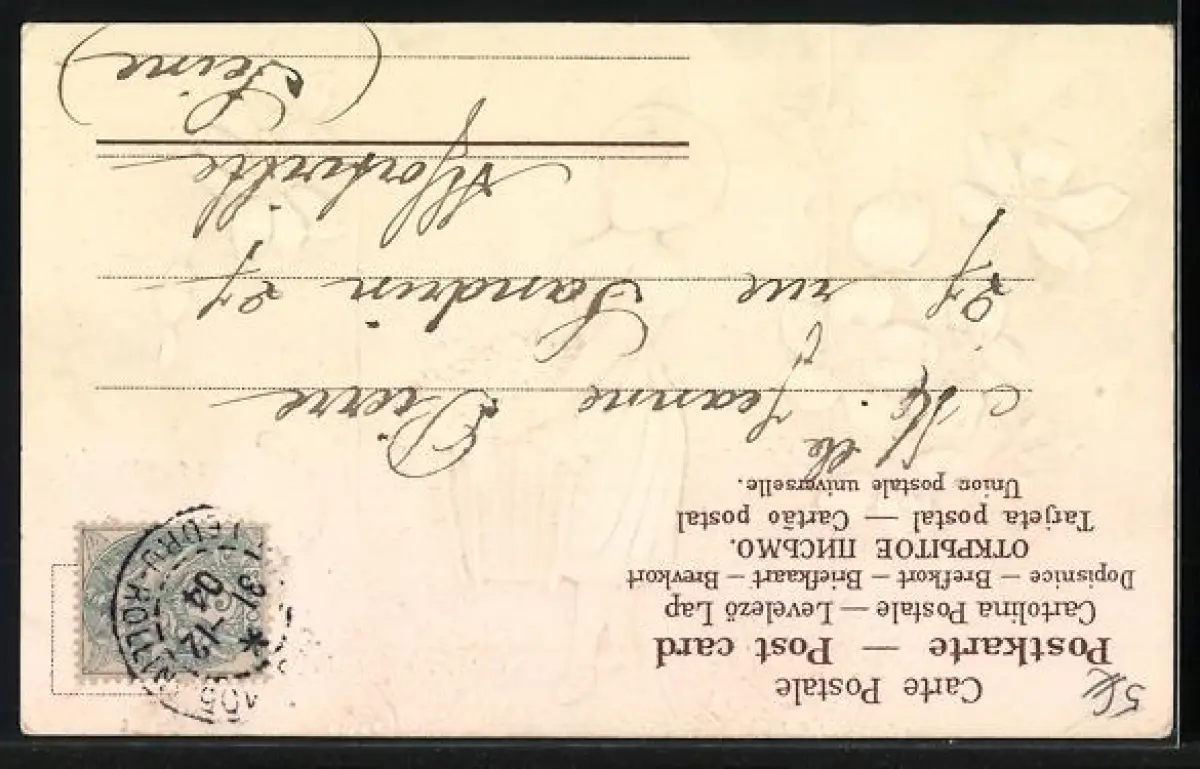 Carte Postale
Postkarte — Post card
Cartolina Postale — Levelező Lap
Dopisnice — Brefkort — Briefkaart — Brevkort
ОТКРЫТОЕ ПИСЬМО.
Tarjeta postal — Cartão postal
Union postale universelle.
Mlle Jeanne Pierre
27 rue Sandrin 27
Alfortville
(Seine)
LEDRU-ROLLIN
31 -12
04